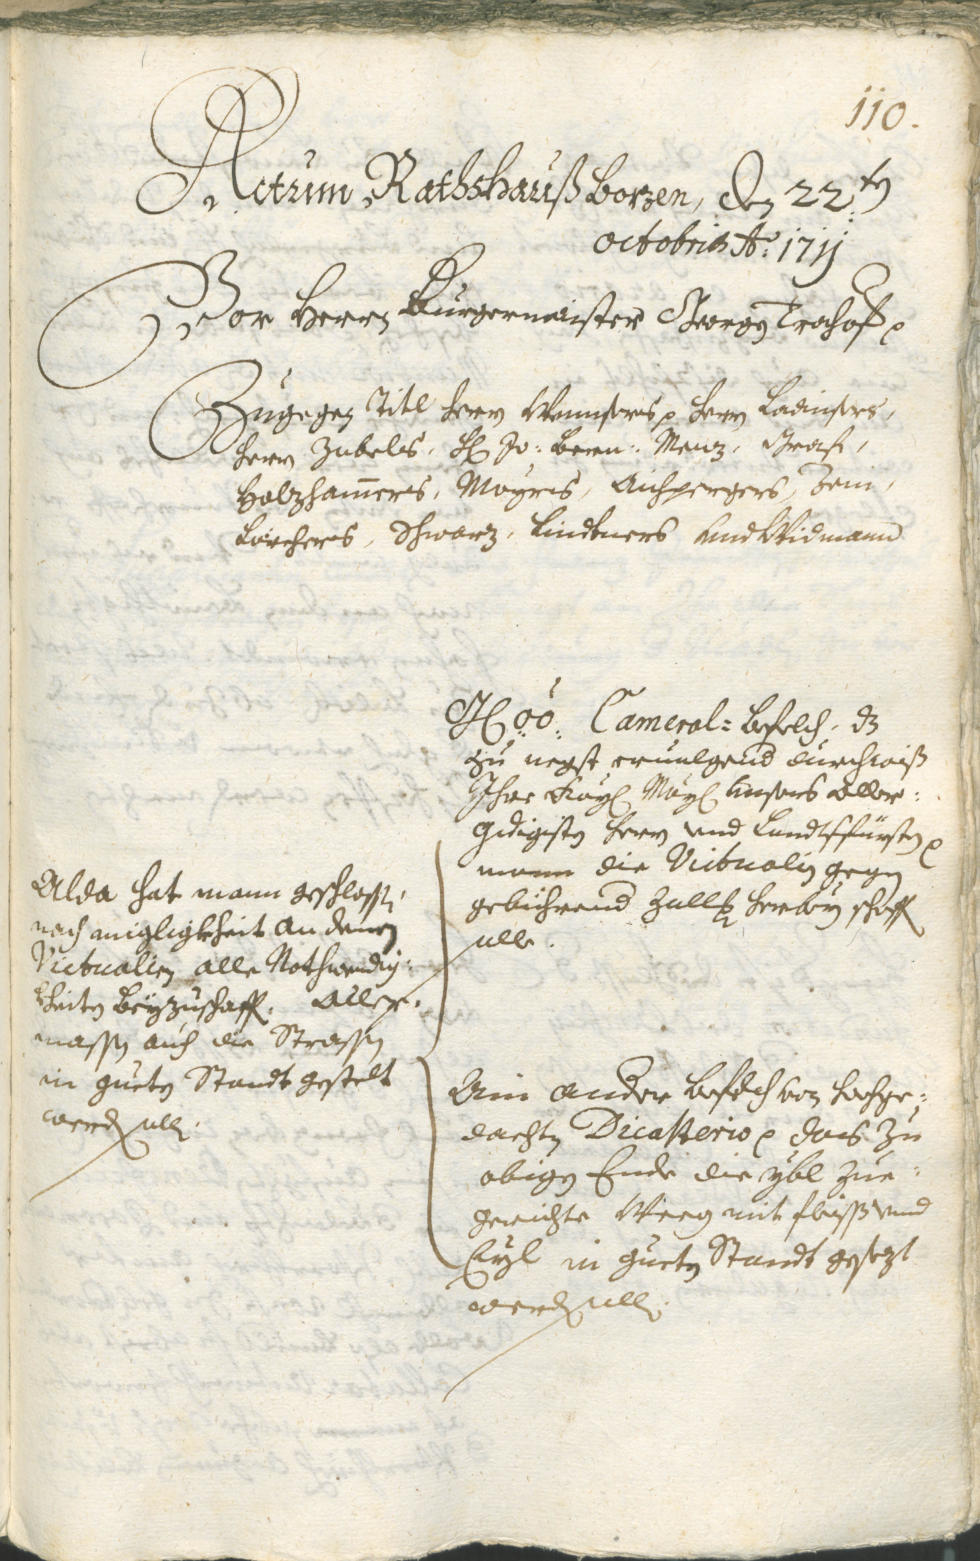 110.
Actum Rathshauß Bozen, den 22.ten
octobris Ao: 1711
Vor Herrn Burgermaister Georgen Trahoff
Zugegen Titl Herrn Wennsers, Herrn Ladinsers,
Herrn Zubeles, Hl Jo: Bern: Menz, Graf,
Holzhamers, Mayrs, Aichpergers, Zeni,
Larchers, Schwarz, Lindtners und Widmann
OÖ: Cameral-Befelch, dz
zu negst ervolgend durchraiß
Ihro Kayl Mayl unsers Aller-
gdigisten Herrn und Landtsfürsten
mann die Victualien gegen
gebührend herbey schaffen
solle.
Alda hat mann geschlossen,
nach migligkheit an denen
Victualien alle Nothwendig-
kheiten beyzuschaffen. Aller-
massen auch die Strassen
in gueten Standt gestelt
werden soll.
Ain ander Befelch von hochge-
dachten Dicasterio das zu
obigen Ende die ybl zue-
gerichte Weeg mit fleiß und
Eyl in gueten Standt gesezt
werden soll.